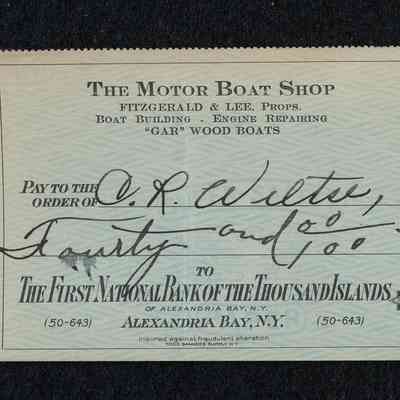 THE MOTOR BOAT SHOP
FITZGERALD & LEE, PROPS.
BOAT BUILDING - ENGINE REPAIRING
"GAR" WOOD BOATS
PAY TO THE
ORDER OF C. R. Wiltse,
Fourty and 00/100
TO
THE FIRST NATIONAL BANK OF THE THOUSAND ISLANDS
OF ALEXANDRIA BAY, N.Y.
(50-643) ALEXANDRIA BAY, N.Y. (50-643)
insured against fraudulent alteration